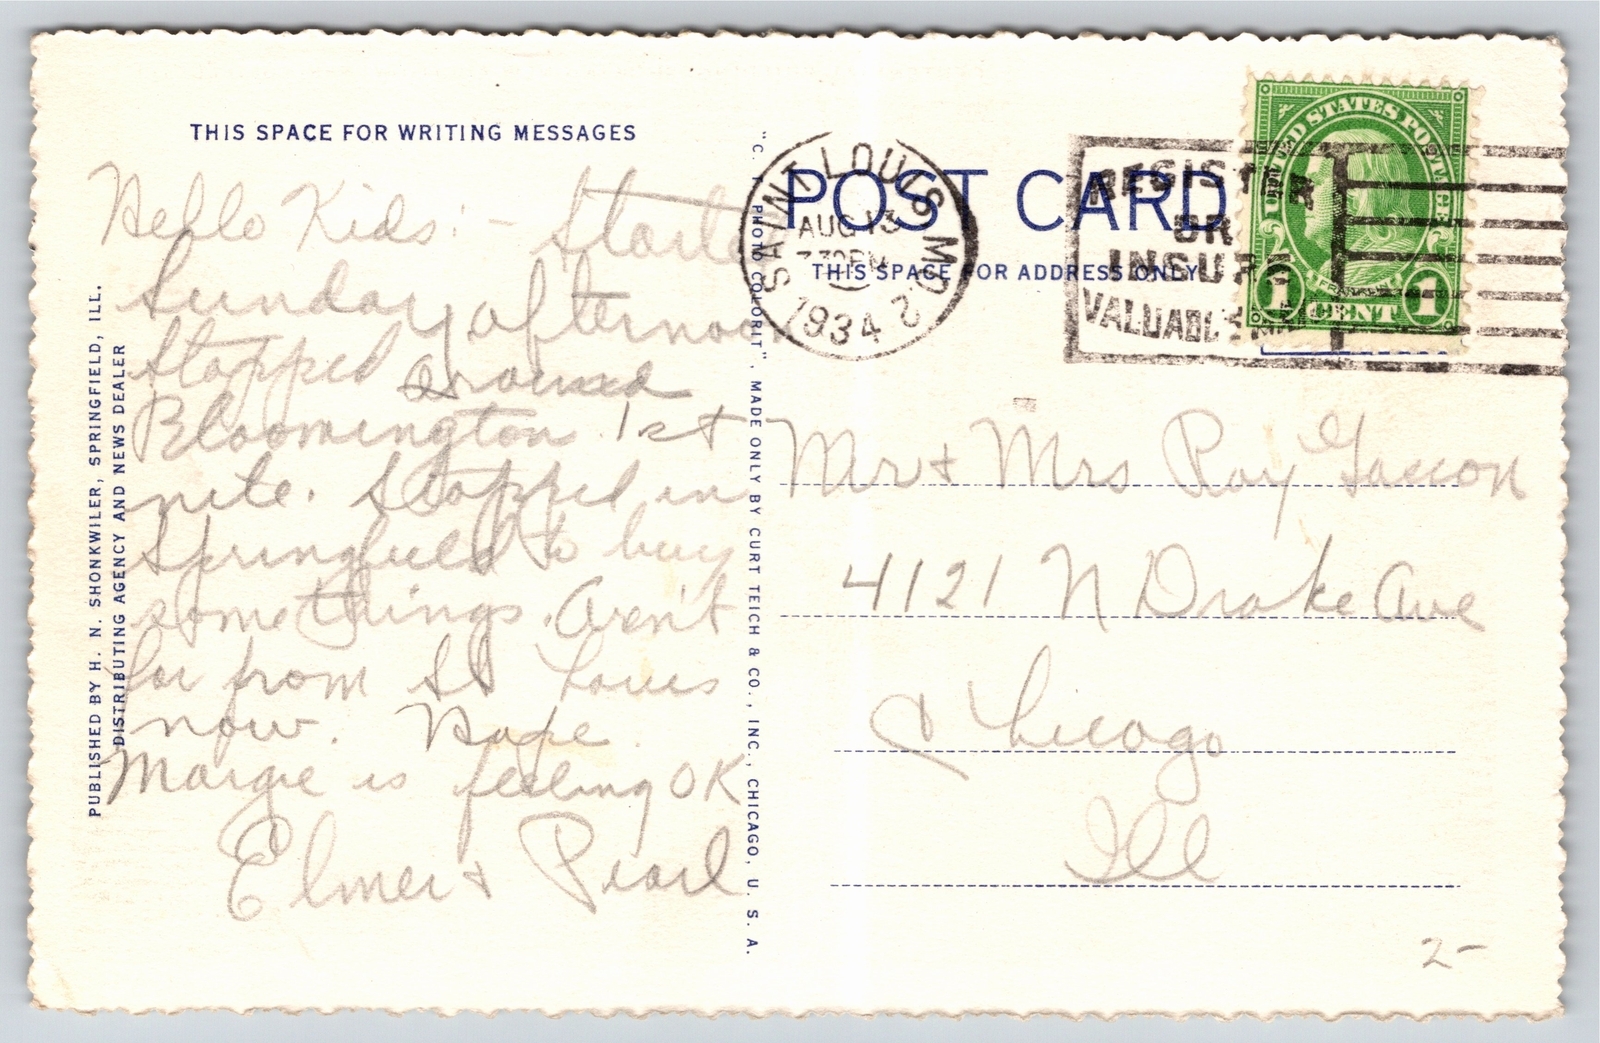 THIS SPACE FOR WRITING MESSAGES
Hello Kids:- Started
Sunday afternoon
Stopped around
Bloomington 1st
nite. Stopped in
Springfield to buy
some things. Aren't
far from St Louis
now. Hope
Margie is feeling OK
Elmer + Pearl
PUBLISHED BY H. N. SHONKWILER, SPRINGFIELD, ILL.
DISTRIBUTING AGENCY AND NEWS DEALER
PHOTO COLORIT", MADE ONLY BY CURT TEICH & CO., INC., CHICAGO, U. S. A.
POST CARD
THIS SPACE FOR ADDRESS ONLY
SAINT LOUIS MO. 2
AUG 13
7 30 PM
1934
REGISTER
OR
INSURE
VALUABLE
UNITED STATES POSTAGE
FRANKLIN
1 CENT 1
Mr + Mrs Roy
4121 N Drake Ave
Chicago
Ill
2-